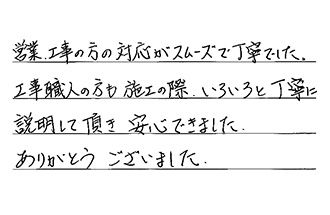 営業.工事の方の対応がスムーズで丁寧でした。
工事職人の方も施工の際.いろいろと丁寧に
説明して頂き 安心できました.
ありがとう ございました.